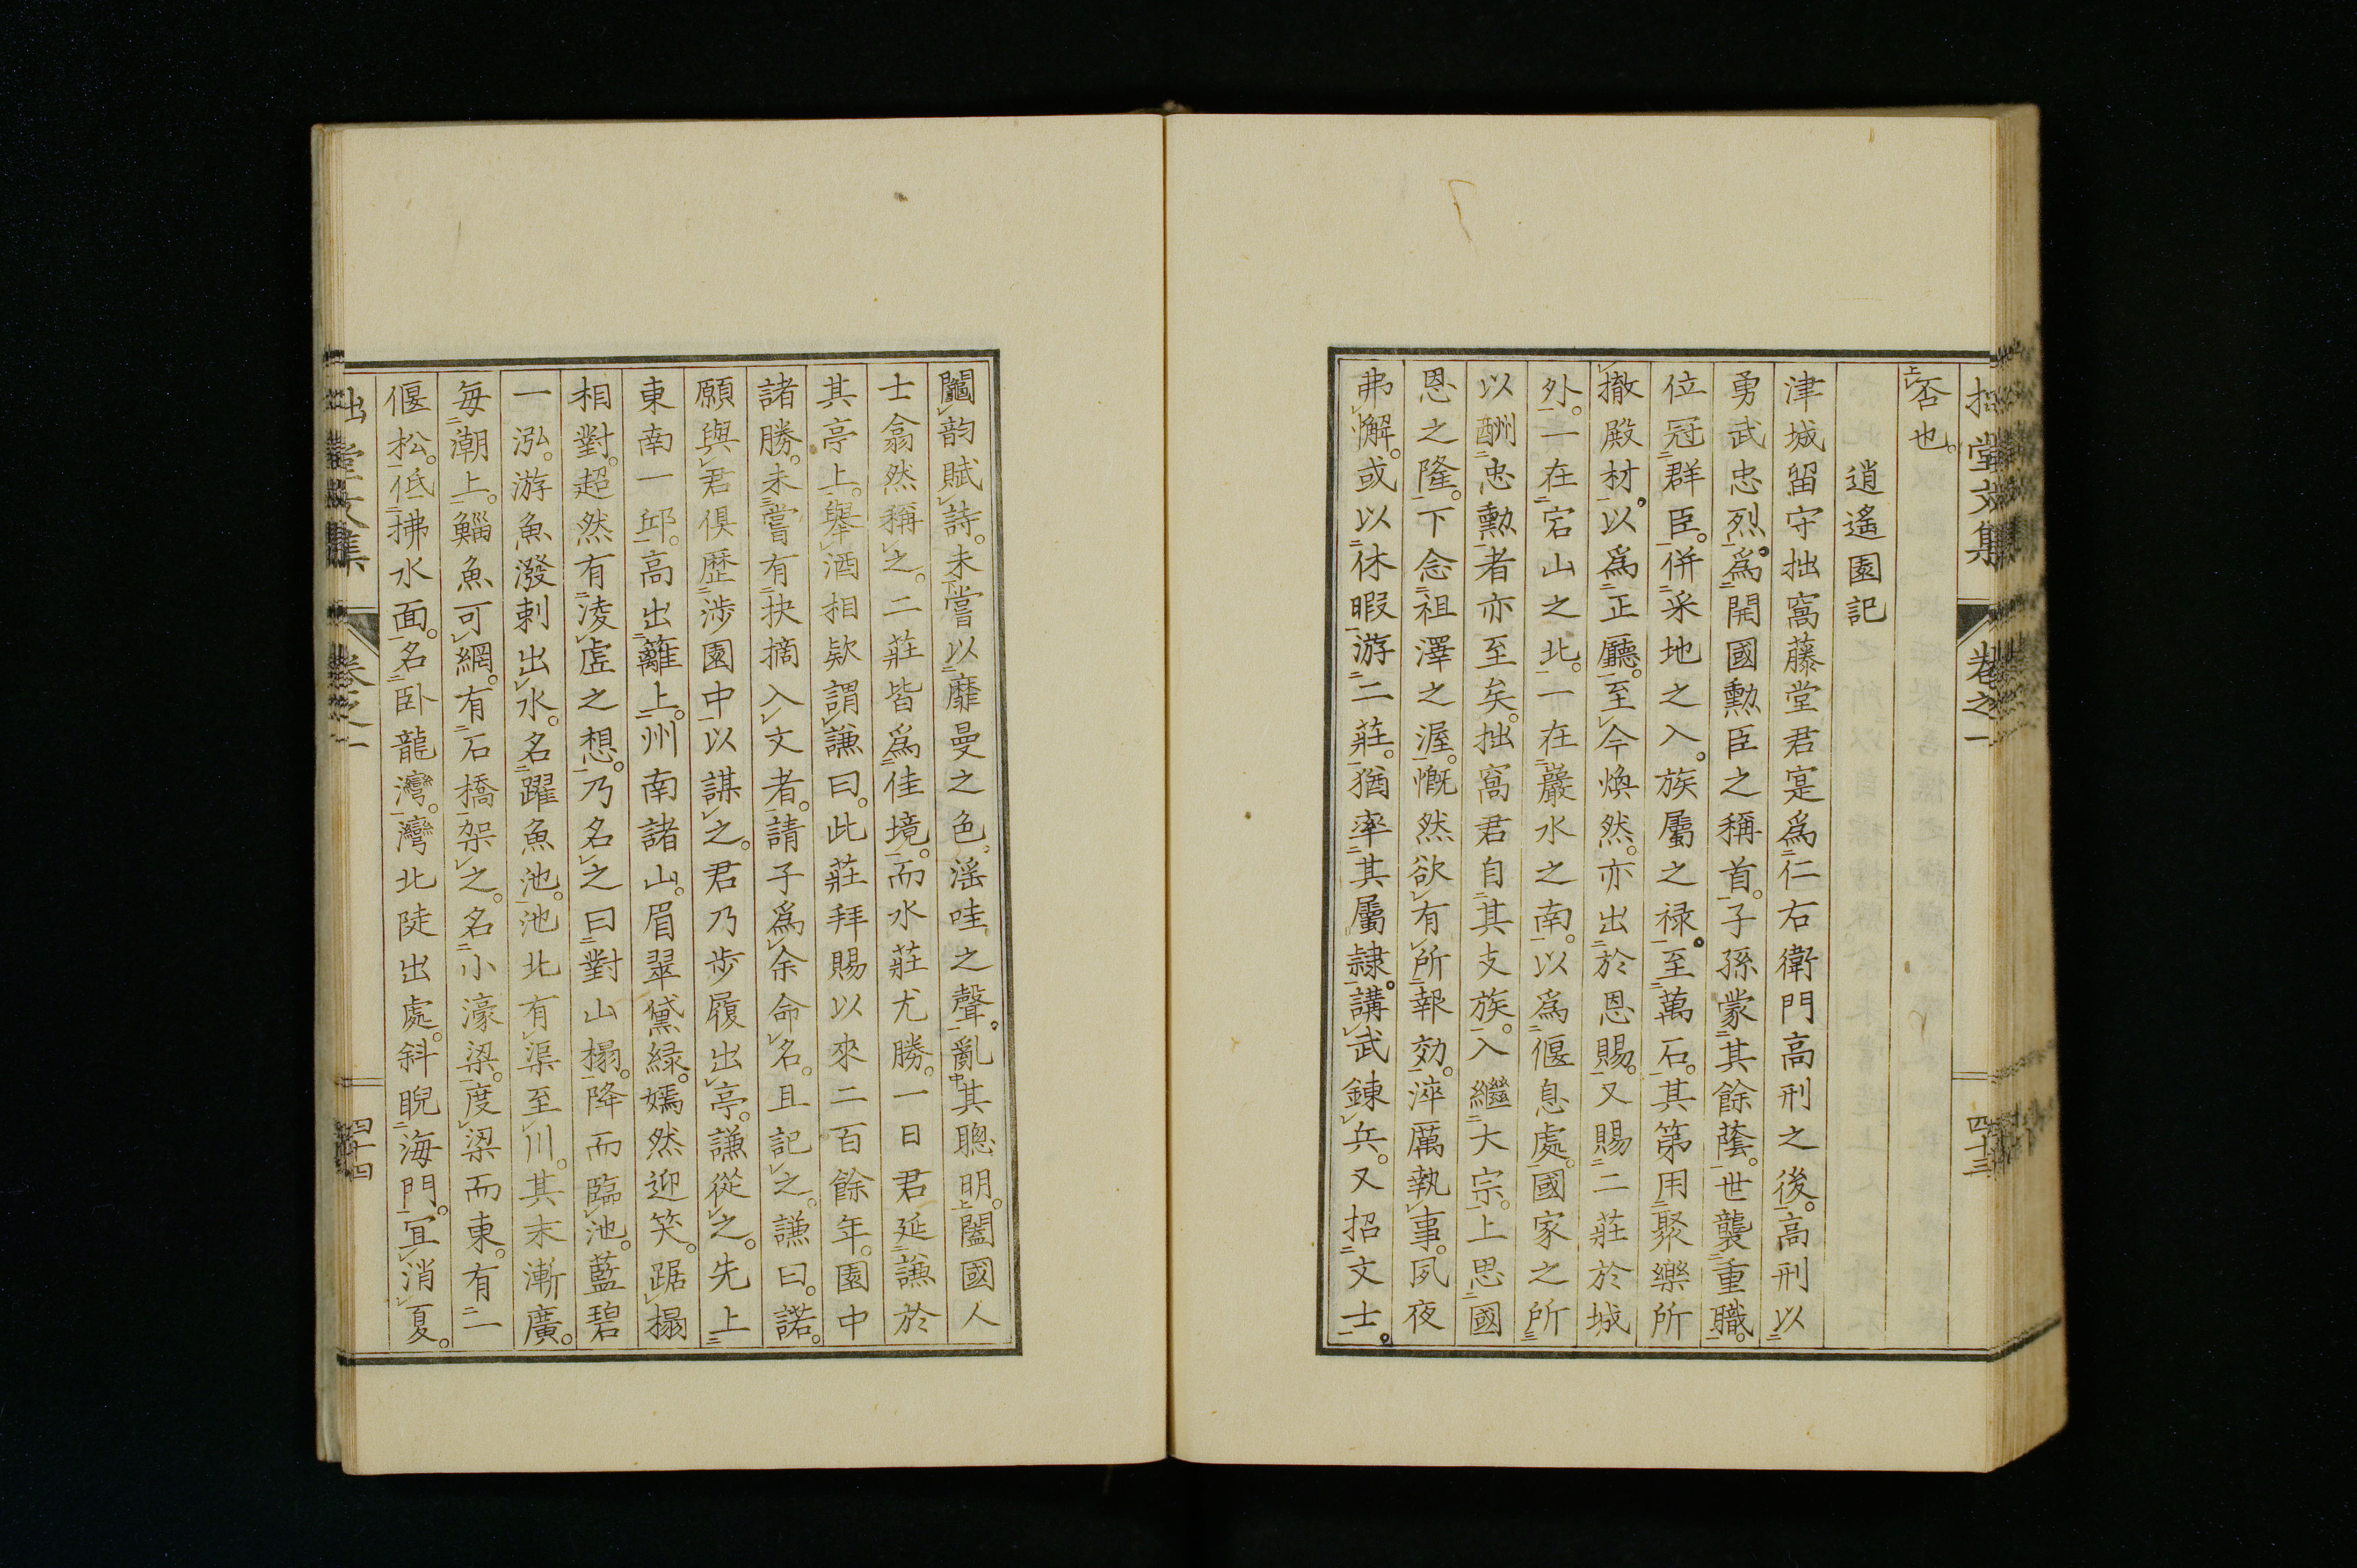 拙堂文集 卷之一 四十三
否也。
逍遙園記
津城留守拙窩藤堂君寔爲仁右衛門高刑之後。高刑以
勇武忠烈。爲開國勲臣之稱首。子孫蒙其餘蔭。世襲重職。
位冠群臣。併采地之入。族屬之祿。至萬石。其第用聚樂所
撤殿材。以爲正廳。至今煥然。亦出於恩賜。又賜二莊於城
外。一在宕山之北。一在巖水之南。以爲偃息處。國家之所
以酬忠勲者亦至矣。拙窩君自其支族。入繼大宗。上思國
恩之隆。下念祖澤之渥。慨然欲有所報効。淬厲執事。夙夜
弗懈。或以休暇游二莊。猶率其屬隷。講武錬兵。又招文士。
鬮韵賦詩。未嘗以靡曼之色。滛哇之聲。亂其聰明。闔國人
士翕然稱之。二莊皆爲佳境。而水莊尤勝。一日君延謙於
其亭上。舉酒相歎謂謙曰。此莊拜賜以來二百餘年。園中
諸勝。未嘗有抉摘入文者。請子爲余命名。且記之。謙曰。諾。
願與君俱歷涉園中以謀之。君乃步履出亭。謙從之。先上
東南一邱。高出籬上。州南諸山。眉翠黛緑。嫣然迎笑。踞榻
相對。超然有凌虛之想。乃名之曰對山榻。降而臨池。藍碧
一泓。游魚潑剌出水。名躍魚池。池北有渠至川。其末漸廣。
毎潮上。鯔魚可網。有石橋架之。名小濠梁。度梁而東。有二
偃松。低拂水面。名卧龍灣。灣北陡出處。斜睨海門。冝消夏。
拙堂文集 卷之一 四十四